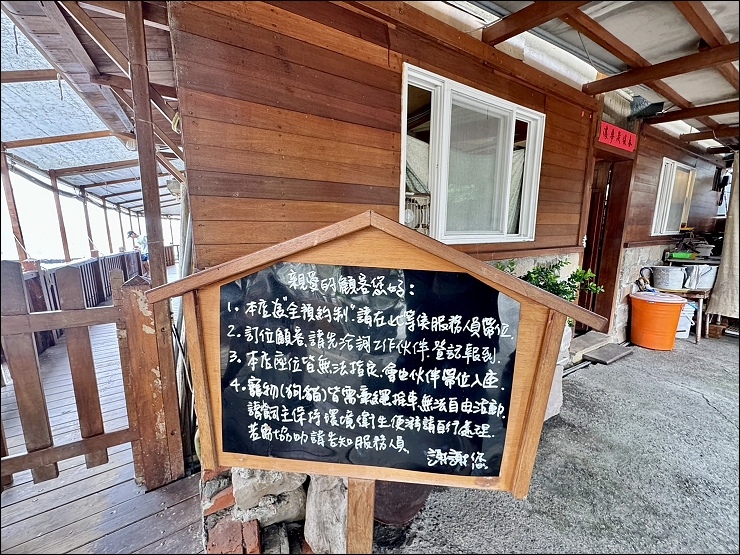 親愛的顧客您好：
1. 本店為"全預約制"請在此等侯服務員帶位.
2. 訂位顧客,請先洽詢工作伙伴,登記報到.
3. 本店座位皆無法指定,會由伙伴帶位入座.
4. 寵物(狗.貓)皆需牽繩推車無法自由活動,
請飼主保持環境衛生便溺請自行處理.
若需協助請告知服務員
謝謝您